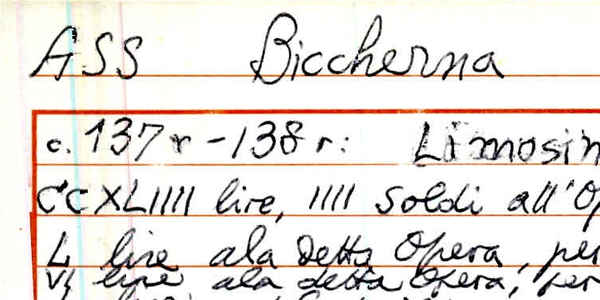 ASS Biccherna
c. 137r - 138r: Limosin
CCXLIIII lire, IIII soldi all'Op
L lire ala detta Opera, per
VI lire ala detta Opera, per